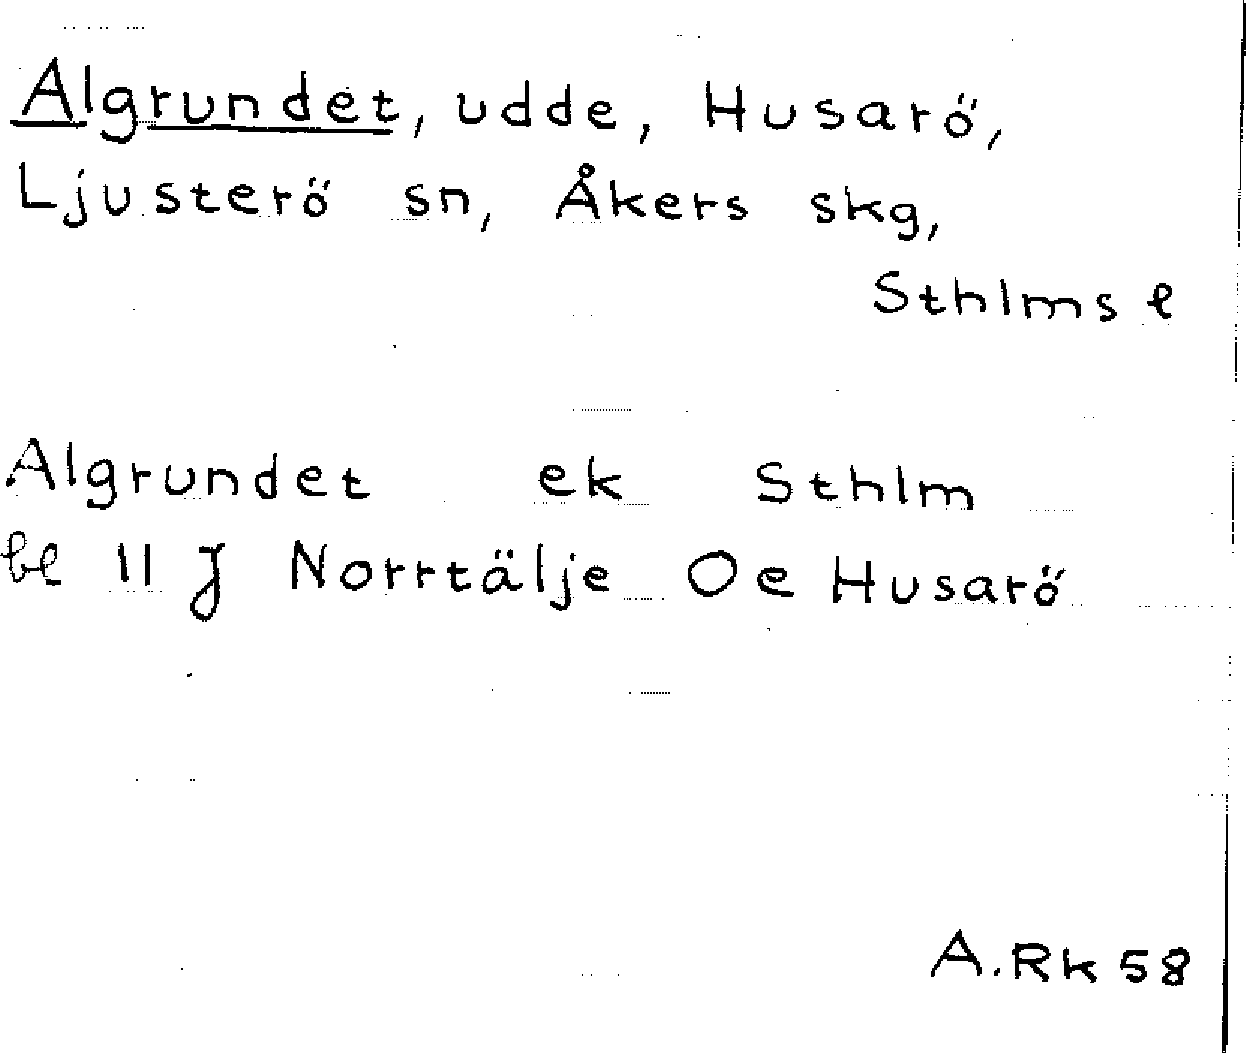 Algrundet, udde, Husarö,
Ljusterö sn, Åkers skg,
Sthlms l
Algrundet ek Sthlm
bl 11 J Norrtälje Oe Husarö
A.Rk 58